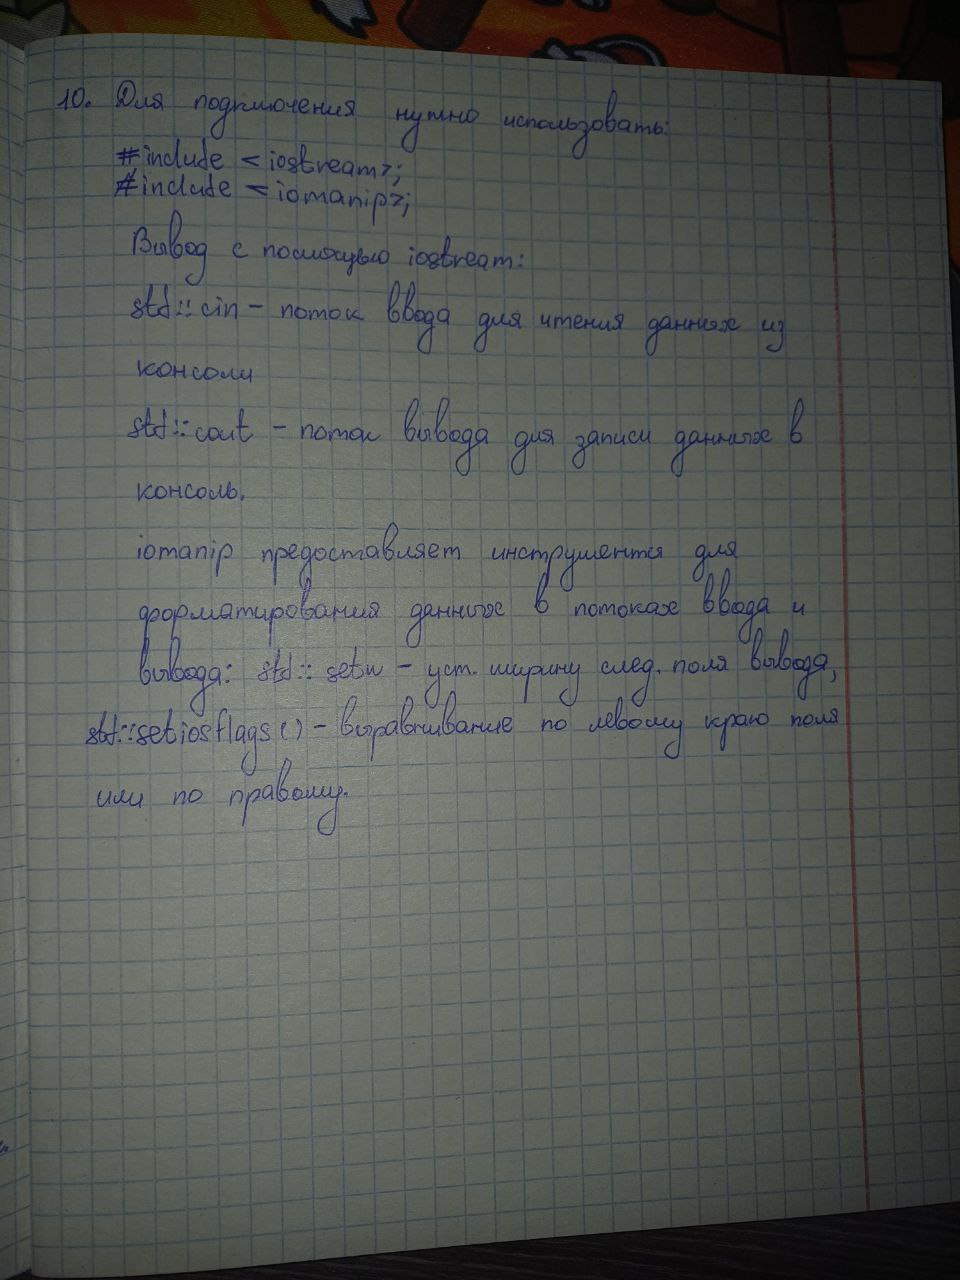 10. Для подключения нужно использовать:
#include <iostream>;
#include <iomanip>;
Вывод с помощью iostream:
std::cin - поток ввода для чтения данных из
консоли
std::cout - поток вывода для записи данных в
консоль.
iomanip предоставляет инструменты для
форматирования данных в потоках ввода и
вывода: std::setw - уст. ширину след. поля вывода,
std::setiosflags() - выравнивание по левому краю поля
или по правому.